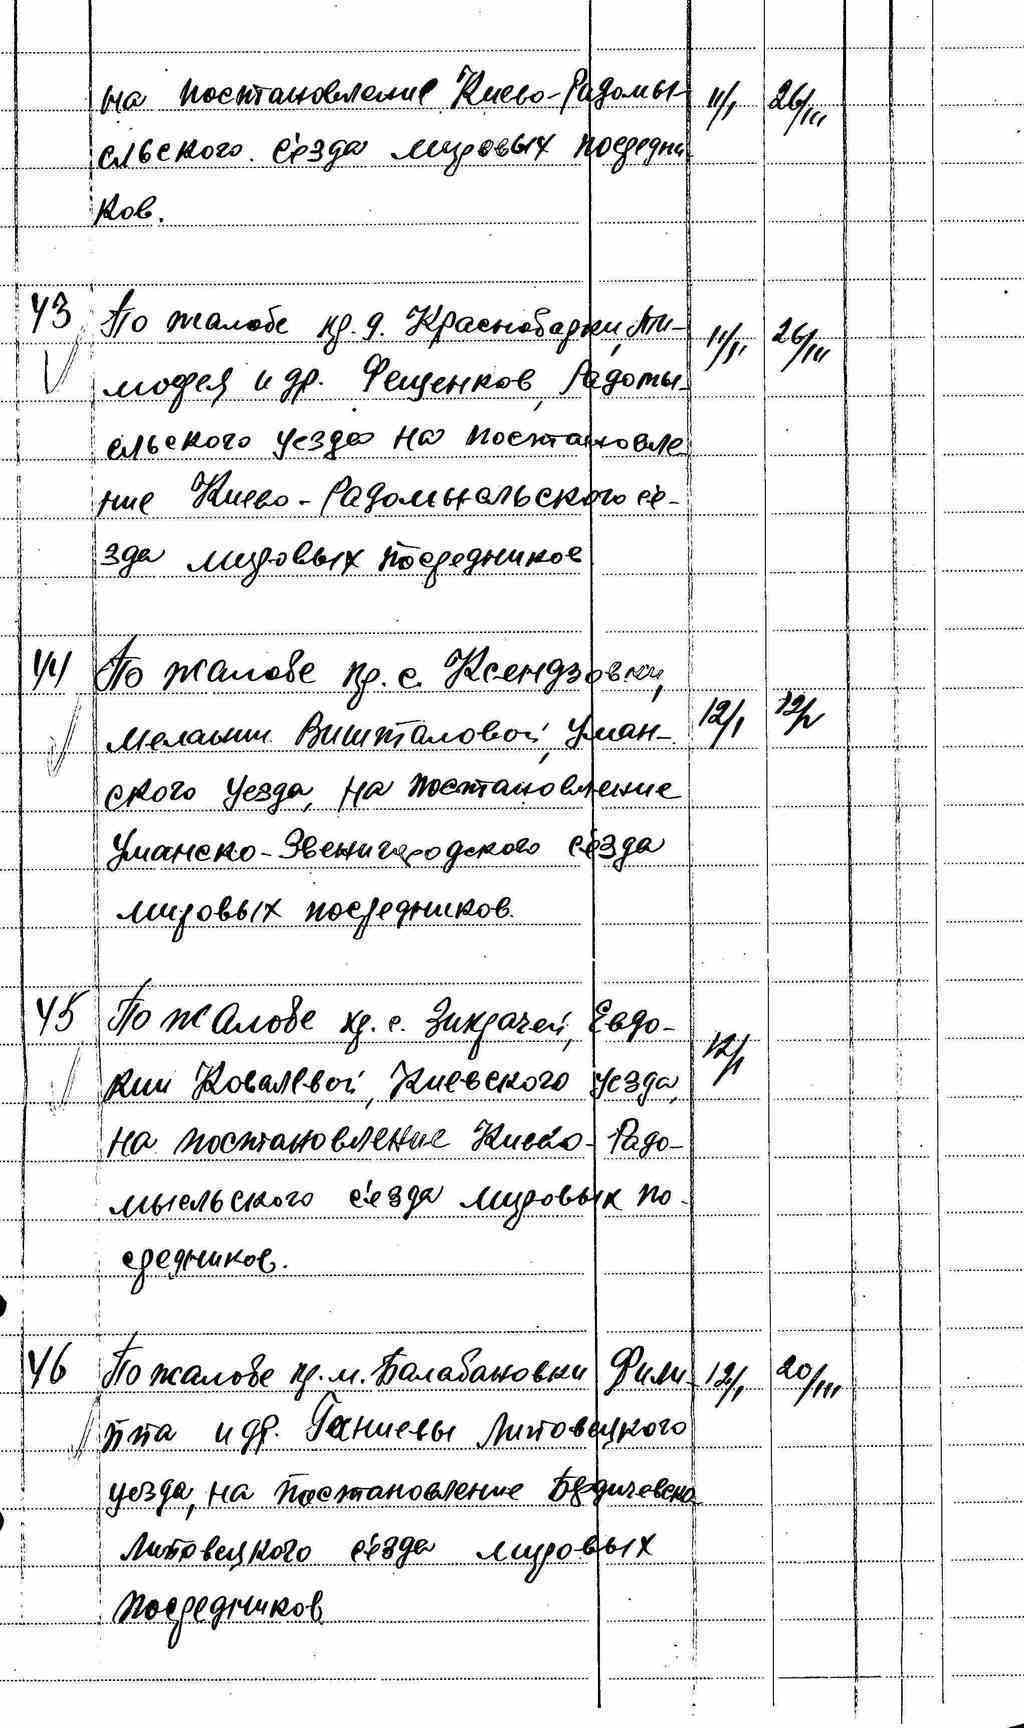 на постановление Киево-Радомы- 11/I 26/III
сльского с'езда мировых посредни
ков.
43 По жалобе кр. д. Краснобарки, Ти- 11/I 26/III
мофея и др. Фещенков, Радомы-
сльского уезда на постановле
ние Киево-Радомысльского с'е-
зда мировых посредников
44 По жалобе кр. с. Ксендзовки, 12/I
Мелании Вишталовой, Уман-
ского уезда, на постановление
Уманско-Звенигородского с'езда
мировых посредников.
45 По жалобе кр. с. Зикрачей, Евдо- 12/I
кии Ковалевой, Киевского уезда,
на постановление Киево-Радо-
мысльского с'езда мировых по-
средников.
46 По жалобе кр. м. Балабановки Фили- 12/I 20/III
ппа и др. Ганиевы Липовецкого
уезда, на постановление Бердичевско
Липовецкого с'езда мировых
посредников